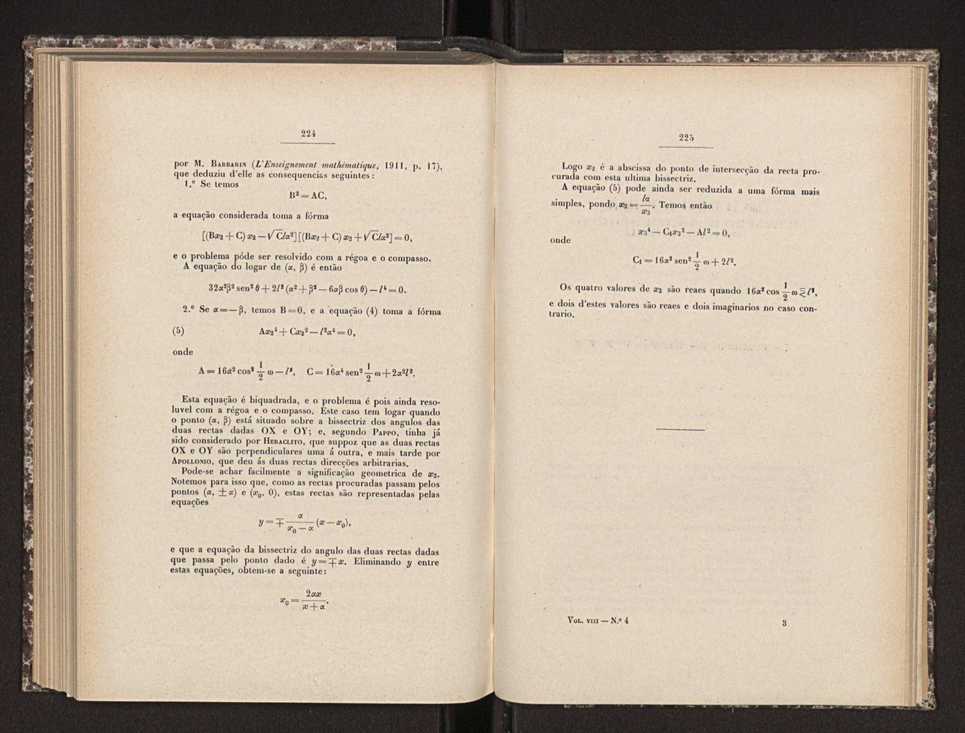 224
por M. BARBARIN (L'Enseignement mathématique, 1911, p. 17),
que deduziu d'elle as consequencias seguintes:
1.º Se temos
B² = AC,
a equação considerada toma a fórma
[(Bx₂ + C) x₂ − √C lα²] [(Bx₂ + C) x₂ + √C lα²] = 0,
e o problema póde ser resolvido com a régoa e o compasso.
A equação do logar de (α, β) é então
32α²β² sen² θ + 2l² (α² + β² − 6αβ cos θ) − l⁴ = 0.
2.º Se α = − β, temos B = 0, e a equação (4) toma a fórma
(5) Ax₂⁴ + Cx₂² − l²α⁴ = 0,
onde
A = 16α² cos² 1/2 ω − l², C = 16α⁴ sen² 1/2 ω + 2α²l².
Esta equação é biquadrada, e o problema é pois ainda reso-
luvel com a régoa e o compasso. Este caso tem logar quando
o ponto (α, β) está situado sobre a bissectriz dos angulos das
duas rectas dadas OX e OY; e, segundo PAPPO, tinha já
sido considerado por HERACLITO, que suppoz que as duas rectas
OX e OY são perpendiculares uma á outra, e mais tarde por
APOLLONIO, que deu ás duas rectas direcções arbitrarias.
Pode-se achar facilmente a significação geometrica de x₂.
Notemos para isso que, como as rectas procuradas passam pelos
pontos (α, ± α) e (x₀, 0), estas rectas são representadas pelas
equações
y = ∓ α/(x₀ − α) (x − x₀),
e que a equação da bissectriz do angulo das duas rectas dadas
que passa pelo ponto dado é y = ∓ x. Eliminando y entre
estas equações, obtem-se a seguinte:
x₀ = 2αx/(x + α).
225
Logo x₂ é a abscissa do ponto de intersecção da recta pro-
curada com esta ultima bissectriz.
A equação (5) pode ainda ser reduzida a uma fórma mais
simples, pondo x₂ = lα/x₃. Temos então
x₃⁴ − C₁x₃² − Al² = 0,
onde
C₁ = 16α² sen² 1/2 ω + 2l².
Os quatro valores de x₂ são reaes quando 16α² cos 1/2 ω ≦ l²,
e dois d'estes valores são reaes e dois imaginarios no caso con-
trario.
VOL. VIII — N.º 4
3